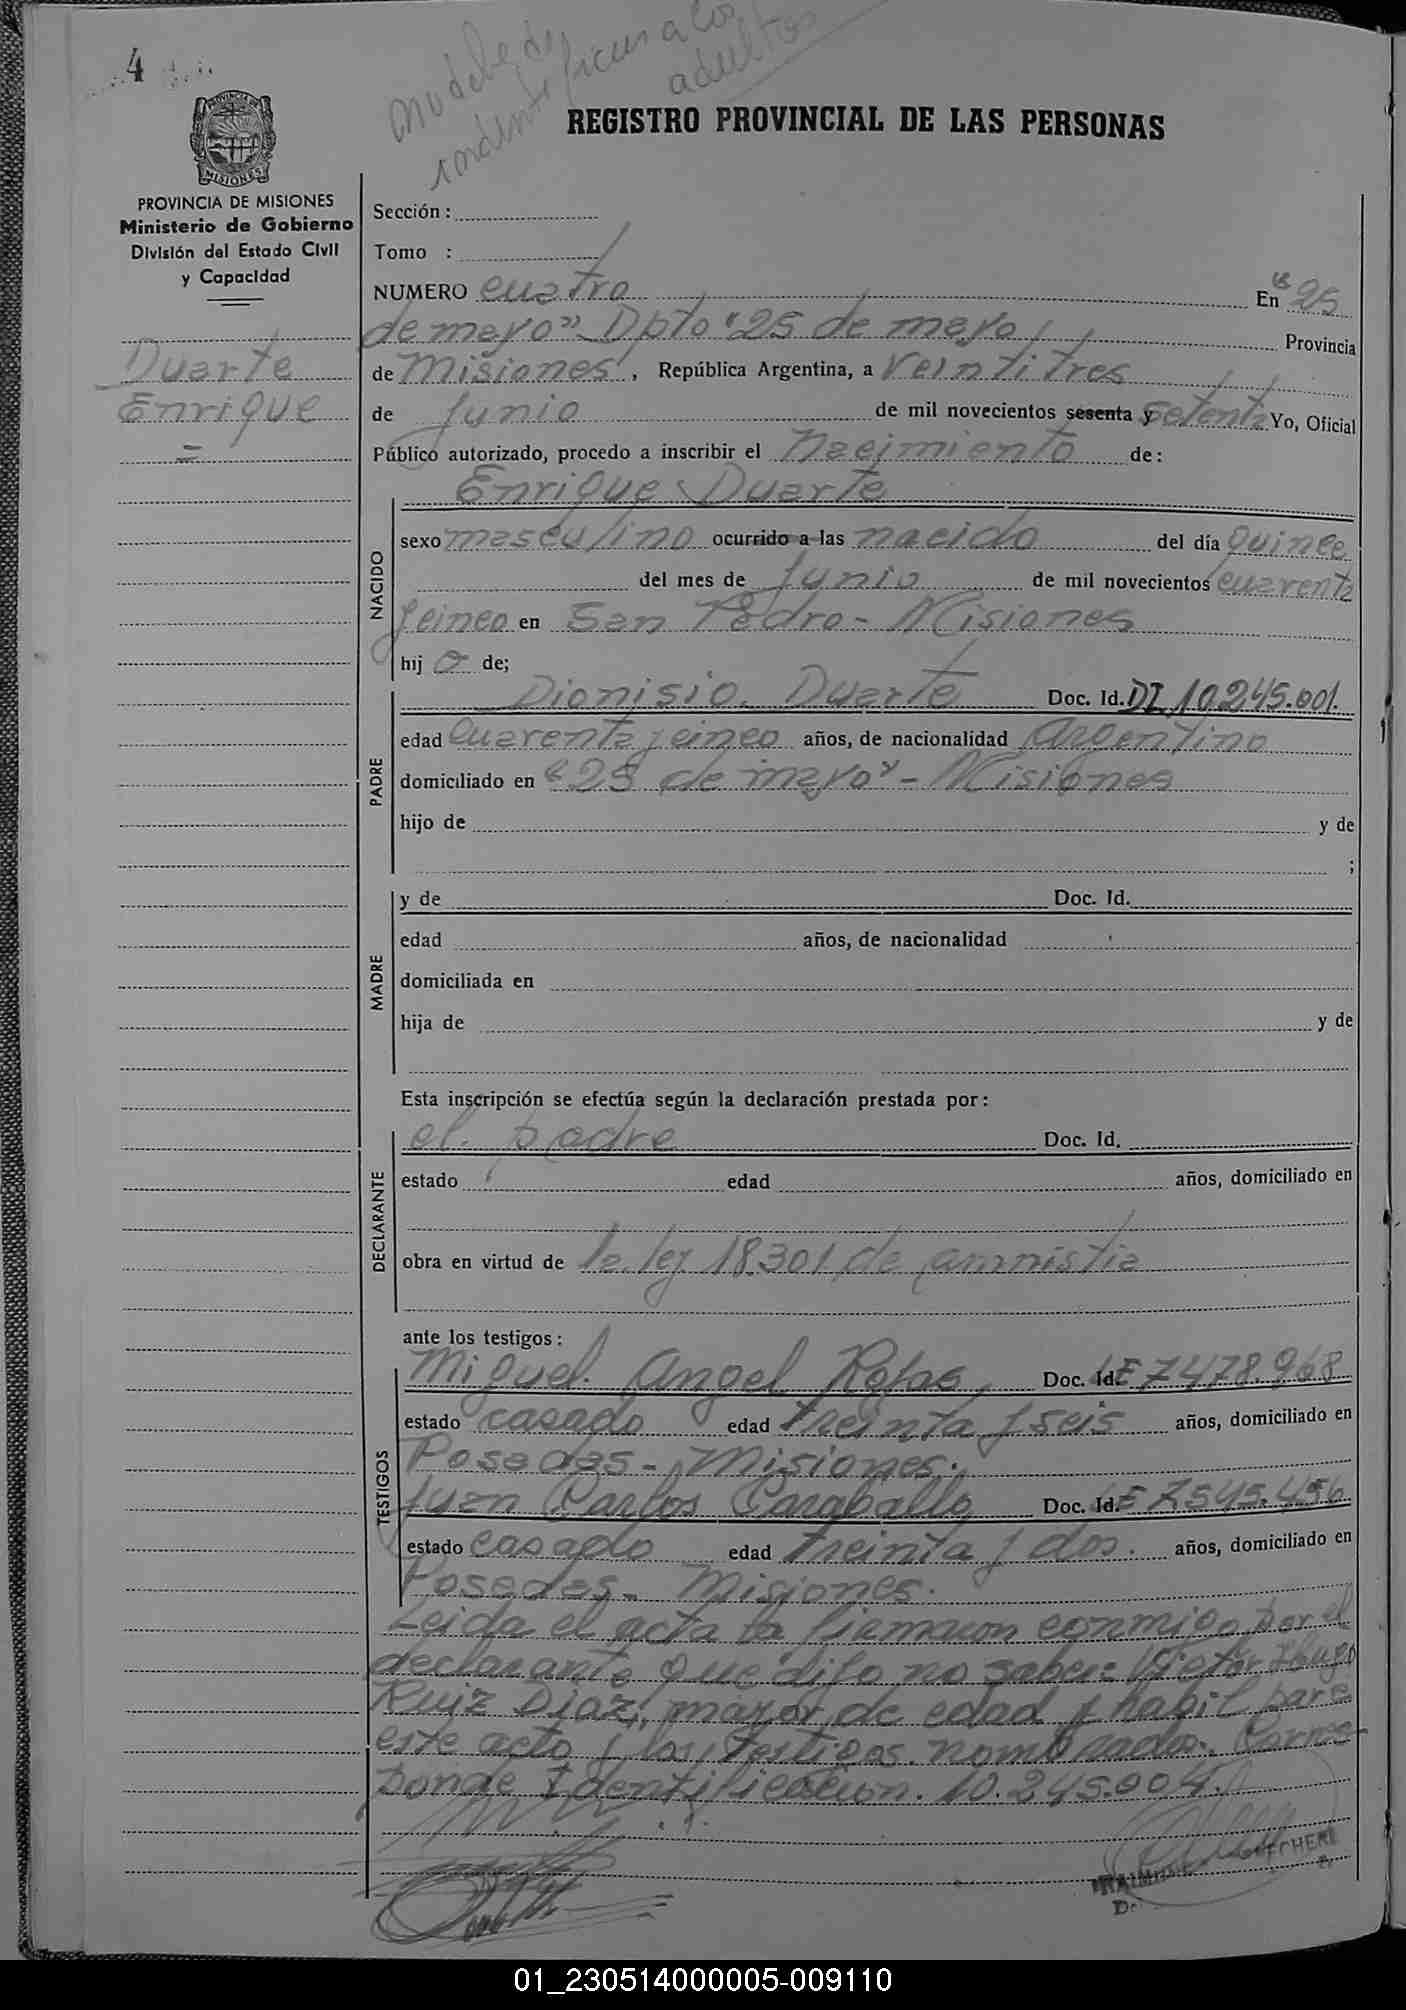 4
no debe de
identificar a los
adultos
REGISTRO PROVINCIAL DE LAS PERSONAS
PROVINCIA DE
MISIONES
PROVINCIA DE MISIONES
Ministerio de Gobierno
División del Estado Civil
y Capacidad
Duarte
Enrique
=
Sección :
Tomo :
NUMERO cuatro En "25
de mayo" Dpto "25 de mayo Provincia
de Misiones, República Argentina, a veintitres
de Junio de mil novecientos sesenta y setenta Yo, Oficial
Público autorizado, procedo a inscribir el Nacimiento de:
NACIDO
Enrique Duarte
sexo masculino ocurrido a las nacido del día quince
del mes de Junio de mil novecientos cuarenta
y cinco en San Pedro - Misiones
hij o de;
PADRE
Dionisio Duarte Doc. Id. DI 10.245.001.
edad cuarenta y cinco años, de nacionalidad argentino
domiciliado en "25 de mayo" - Misiones
hijo de y de
;
MADRE
y de Doc. Id.
edad años, de nacionalidad
domiciliada en
hija de y de
Esta inscripción se efectúa según la declaración prestada por:
DECLARANTE
el padre Doc. Id.
estado edad años, domiciliado en
obra en virtud de la ley 18.301 de amnistia
ante los testigos:
TESTIGOS
Miguel Angel Rojas Doc. Id. LE 7478.968
estado casado edad treinta y seis años, domiciliado en
Posadas - Misiones.
Juan Carlos Caraballo Doc. Id. LE 7545.456
estado casado edad treinta y dos. años, domiciliado en
Posadas - Misiones.
Leida el acta la firmaron conmigo por el
declarante que dijo no saber Victor Hugo
Ruiz Diaz, mayor de edad y habil para
este acto y los testigos nombrados. Corres-
ponde Identificacion. 10.245.004.
01_230514000005-009110